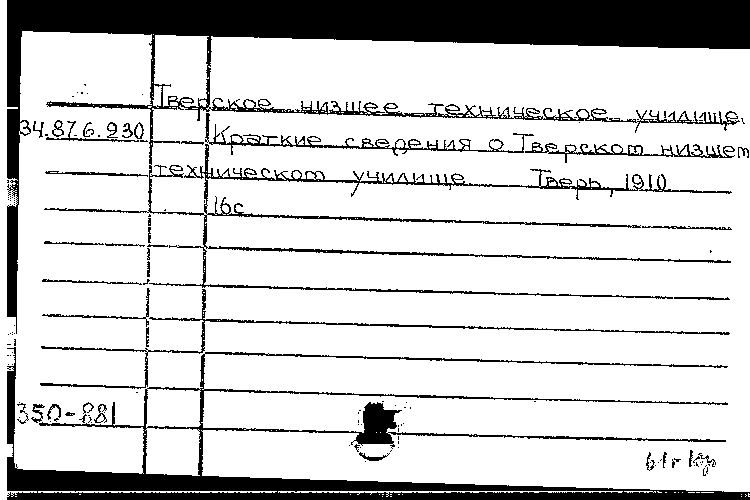 Тверское низшее техническое училище.
34.876.930 Краткие сведения о Тверском низшем
техническом училище Тверь, 1910
16с
350-881